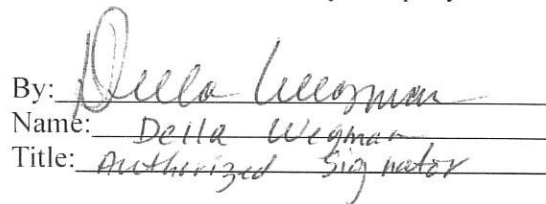 By: Della Wegman
Name: Della Wegman
Title: Authorized Signator